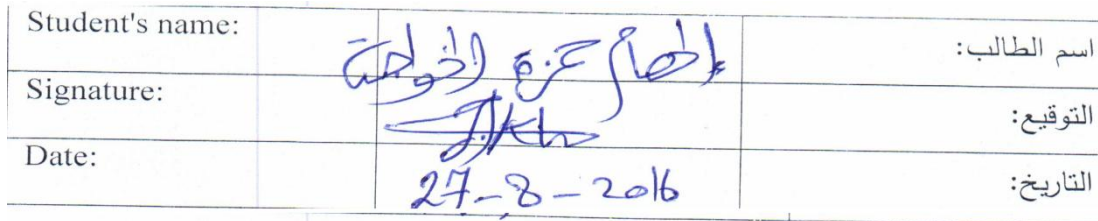 Student's name: إلهام حمزة الخواجة اسم الطالب:
Signature: التوقيع:
Date: 27-8-2016 التاريخ: